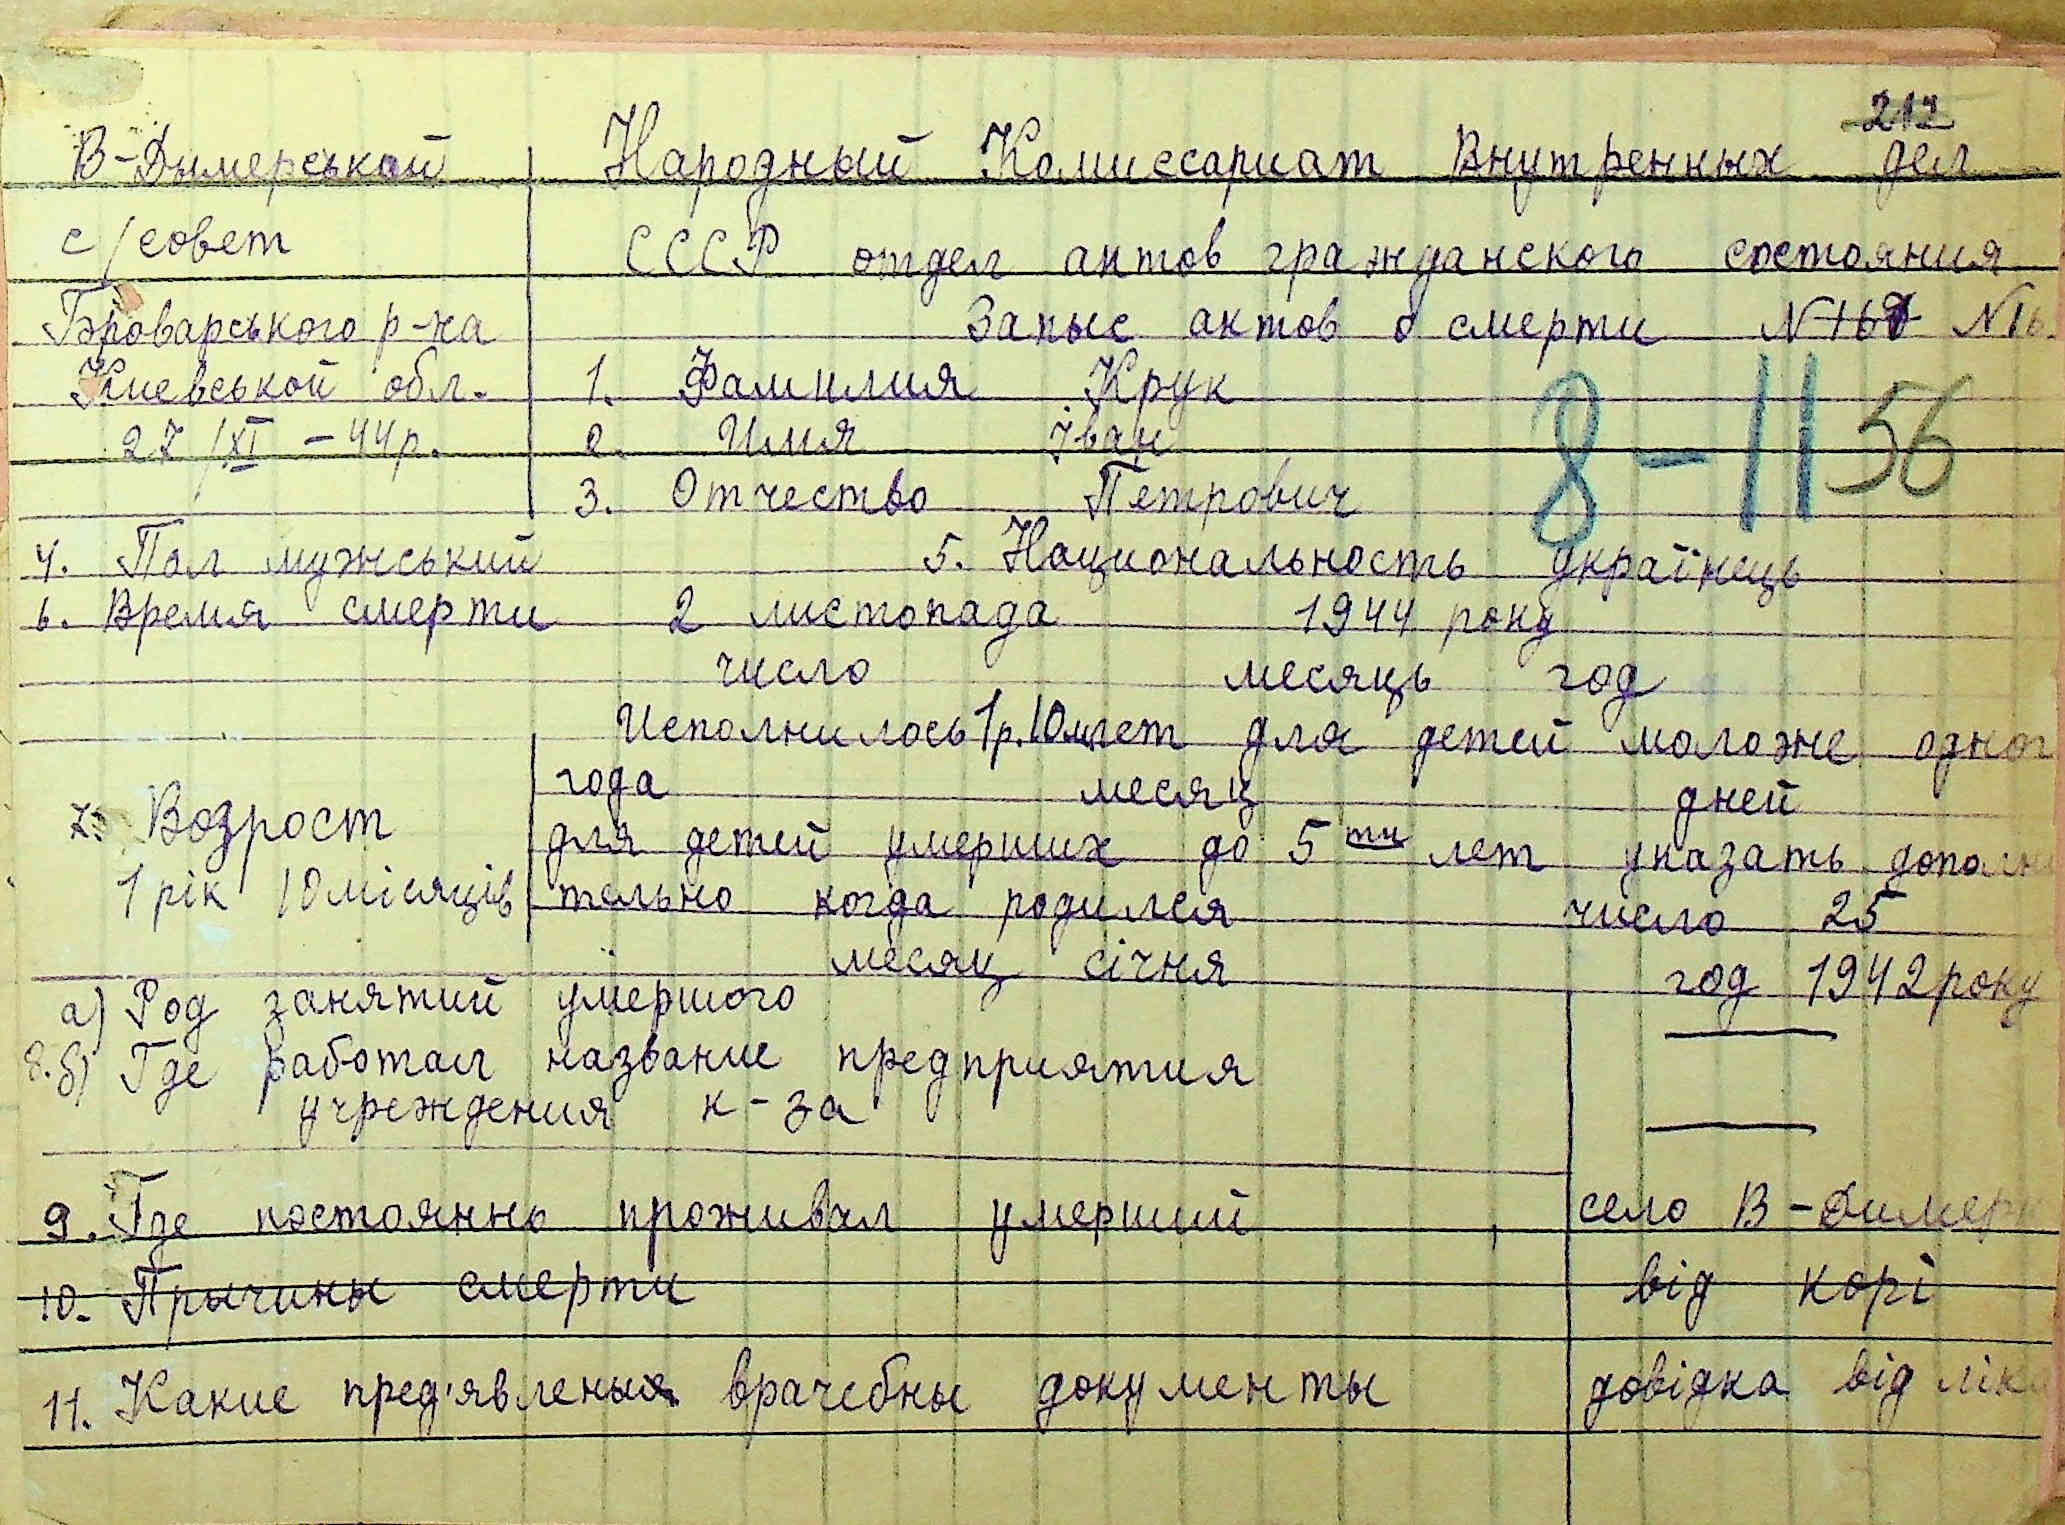 212
В-Дымерськай Народный Комиссариат Внутренных дел
с/совет СССР отдел актов гражданского состояния
Броварського р-на Запыс актов о смерти N167 N16
Киевськой обл. 1. Фамилия Крук
27/XI - 44р. 2. Имя Іван
8-11 56
3. Отчество Петрович
4. Пол мужський 5. Национальность українець
6. Время смерти 2 листопада 1944 року
число месяць год
Исполнилось 1р.10м лет для детей моложе одног
года месяц дней
7. Возрост
для детей умерших до 5ти лет указать дополни
1 рік 10 місяців тельно когда родился число 25
месяц січня год 1942 року
а) Род занятий умершого —
8. б) Где работал название предприятия
учреждения к-за —
9. Где постоянно проживал умерший село В-Димерк
10. Прычины смерти від корі
11. Какие пред'явлены врачебны документы довідка від ліка